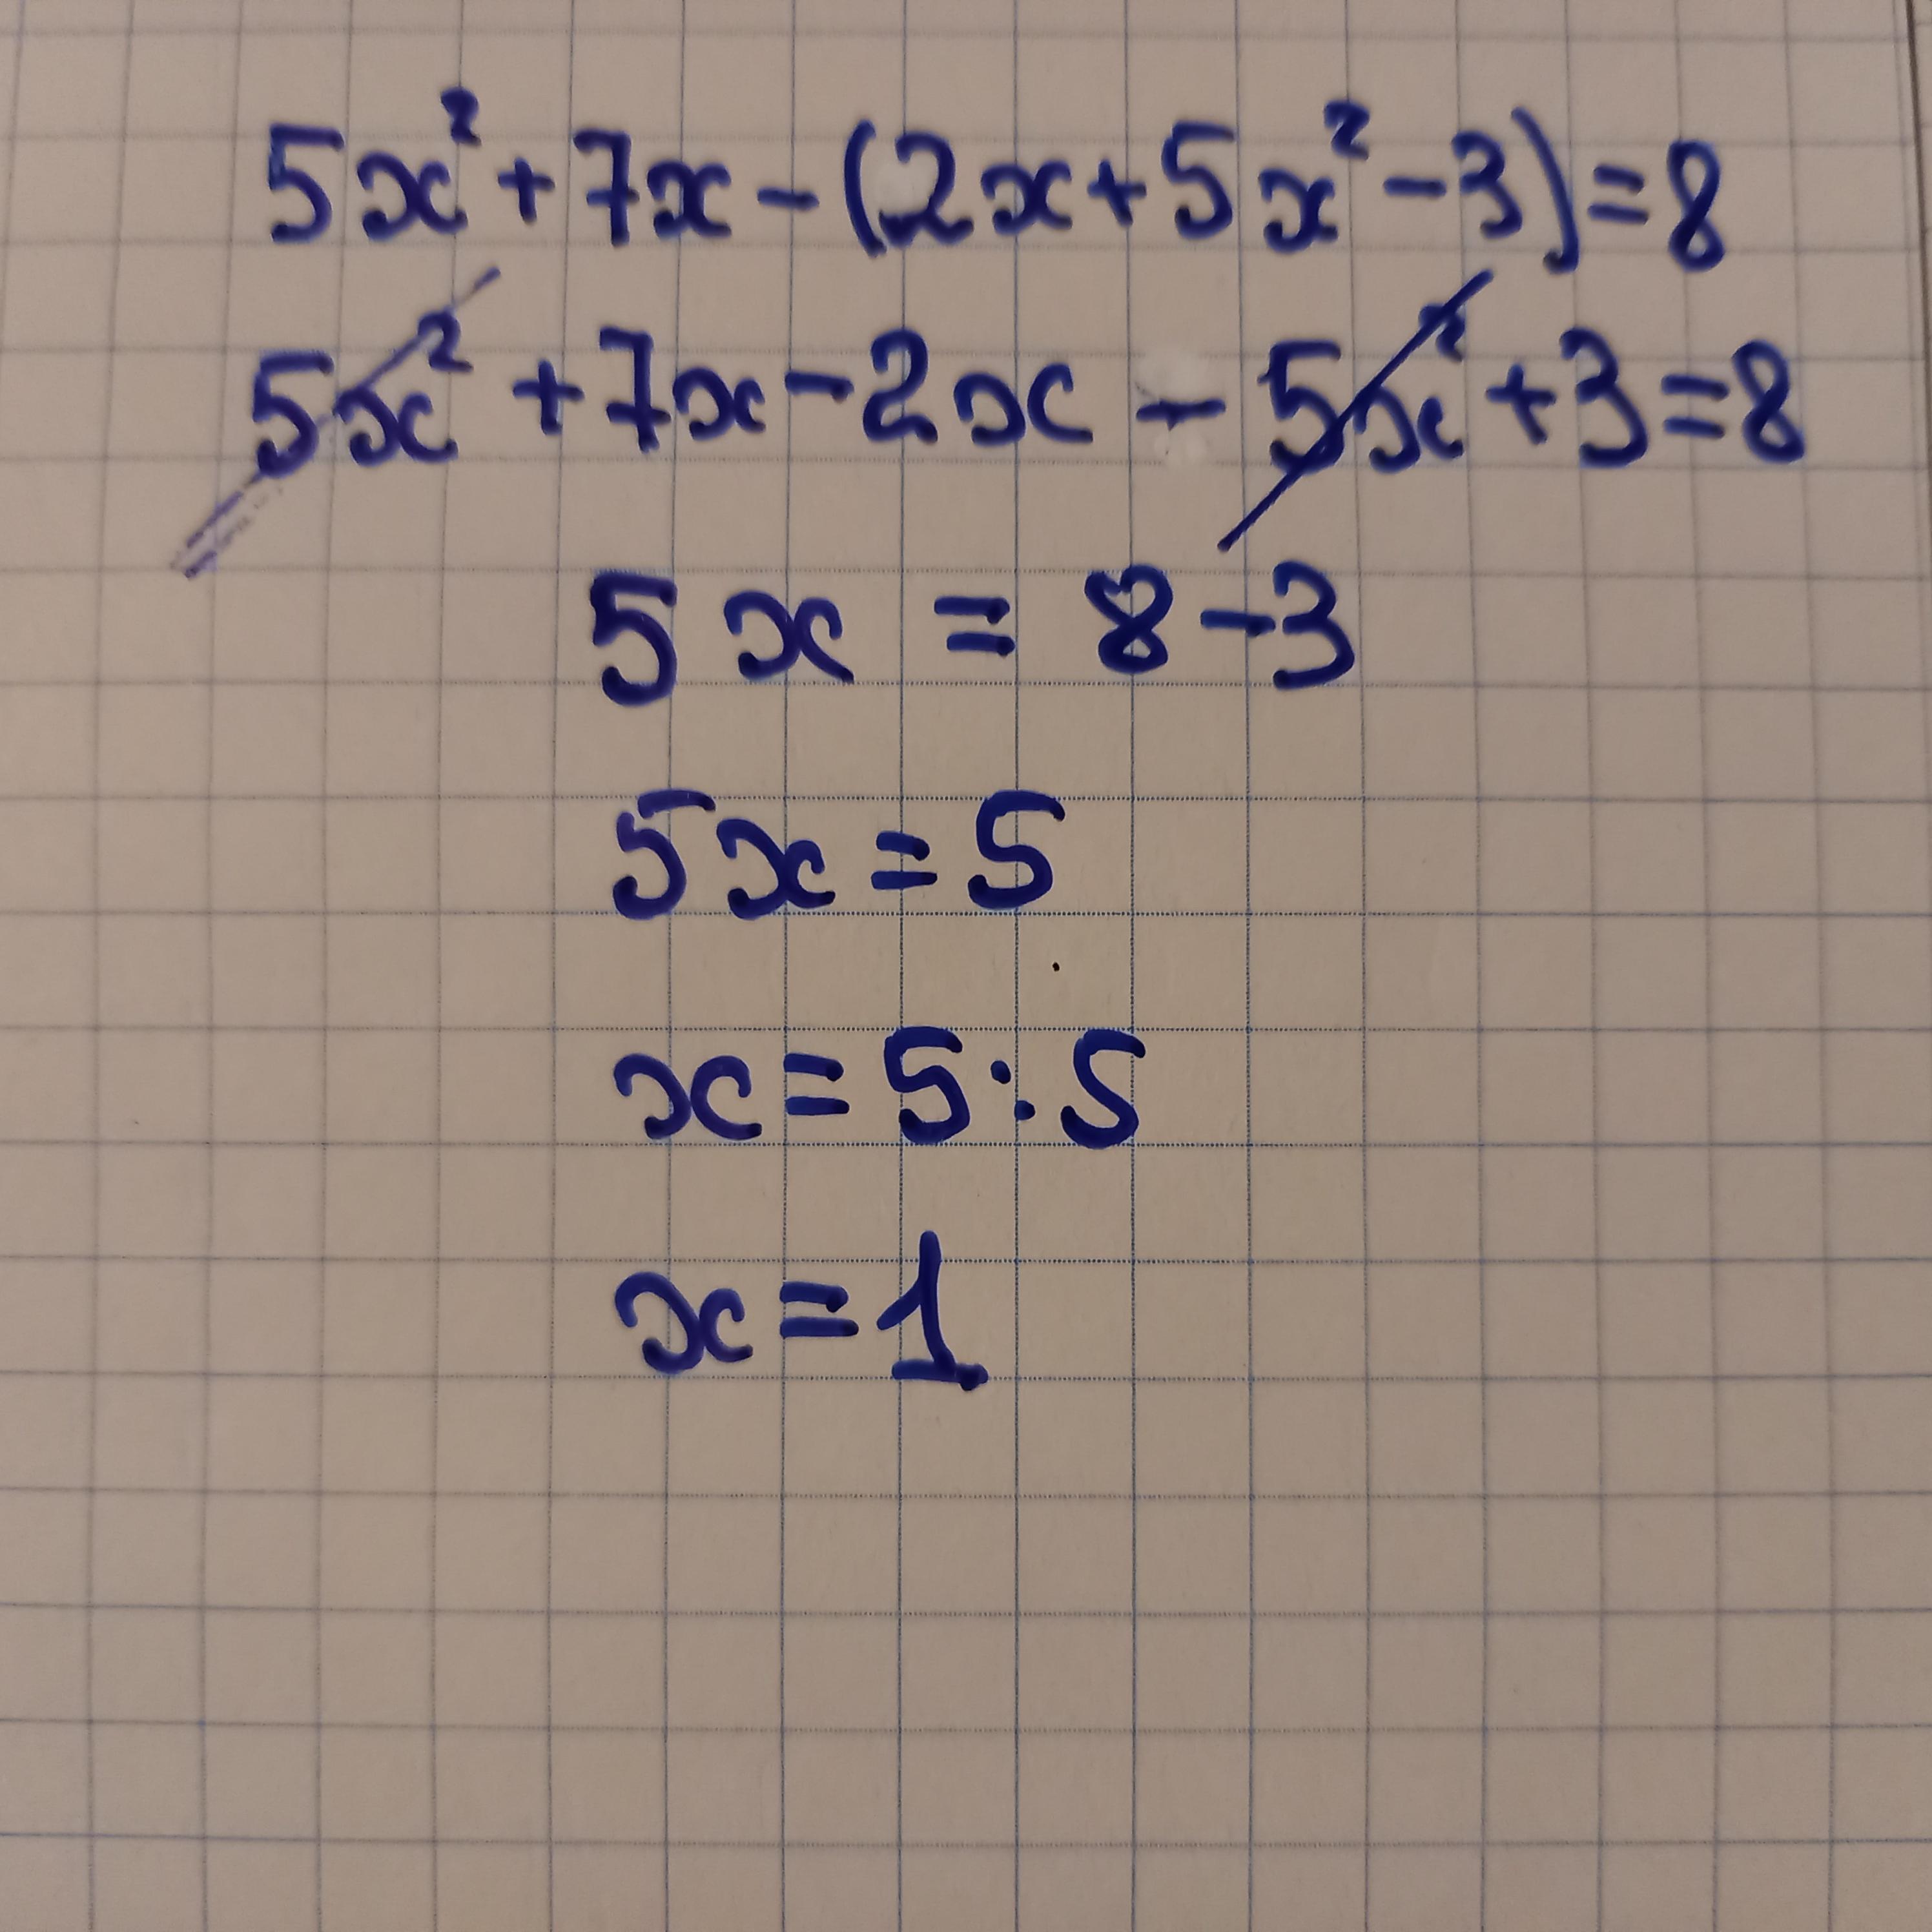 5x² + 7x - (2x + 5x² - 3) = 8
5x² + 7x - 2x - 5x² + 3 = 8
5x = 8 - 3
5x = 5
x = 5 : 5
x = 1